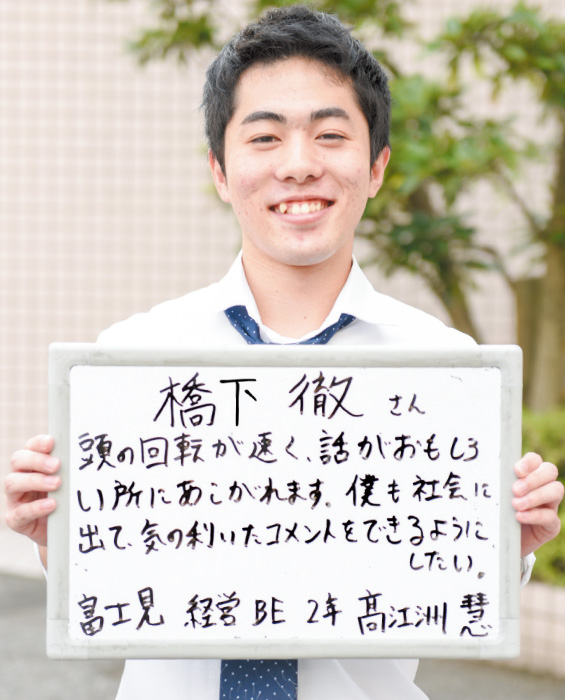 橋下 徹 さん
頭の回転が速く、話がおもしろ
い所にあこがれます。僕も社会に
出て、気の利いたコメントをできるように
したい。
富士見 経営BE 2年 髙江洲 慧